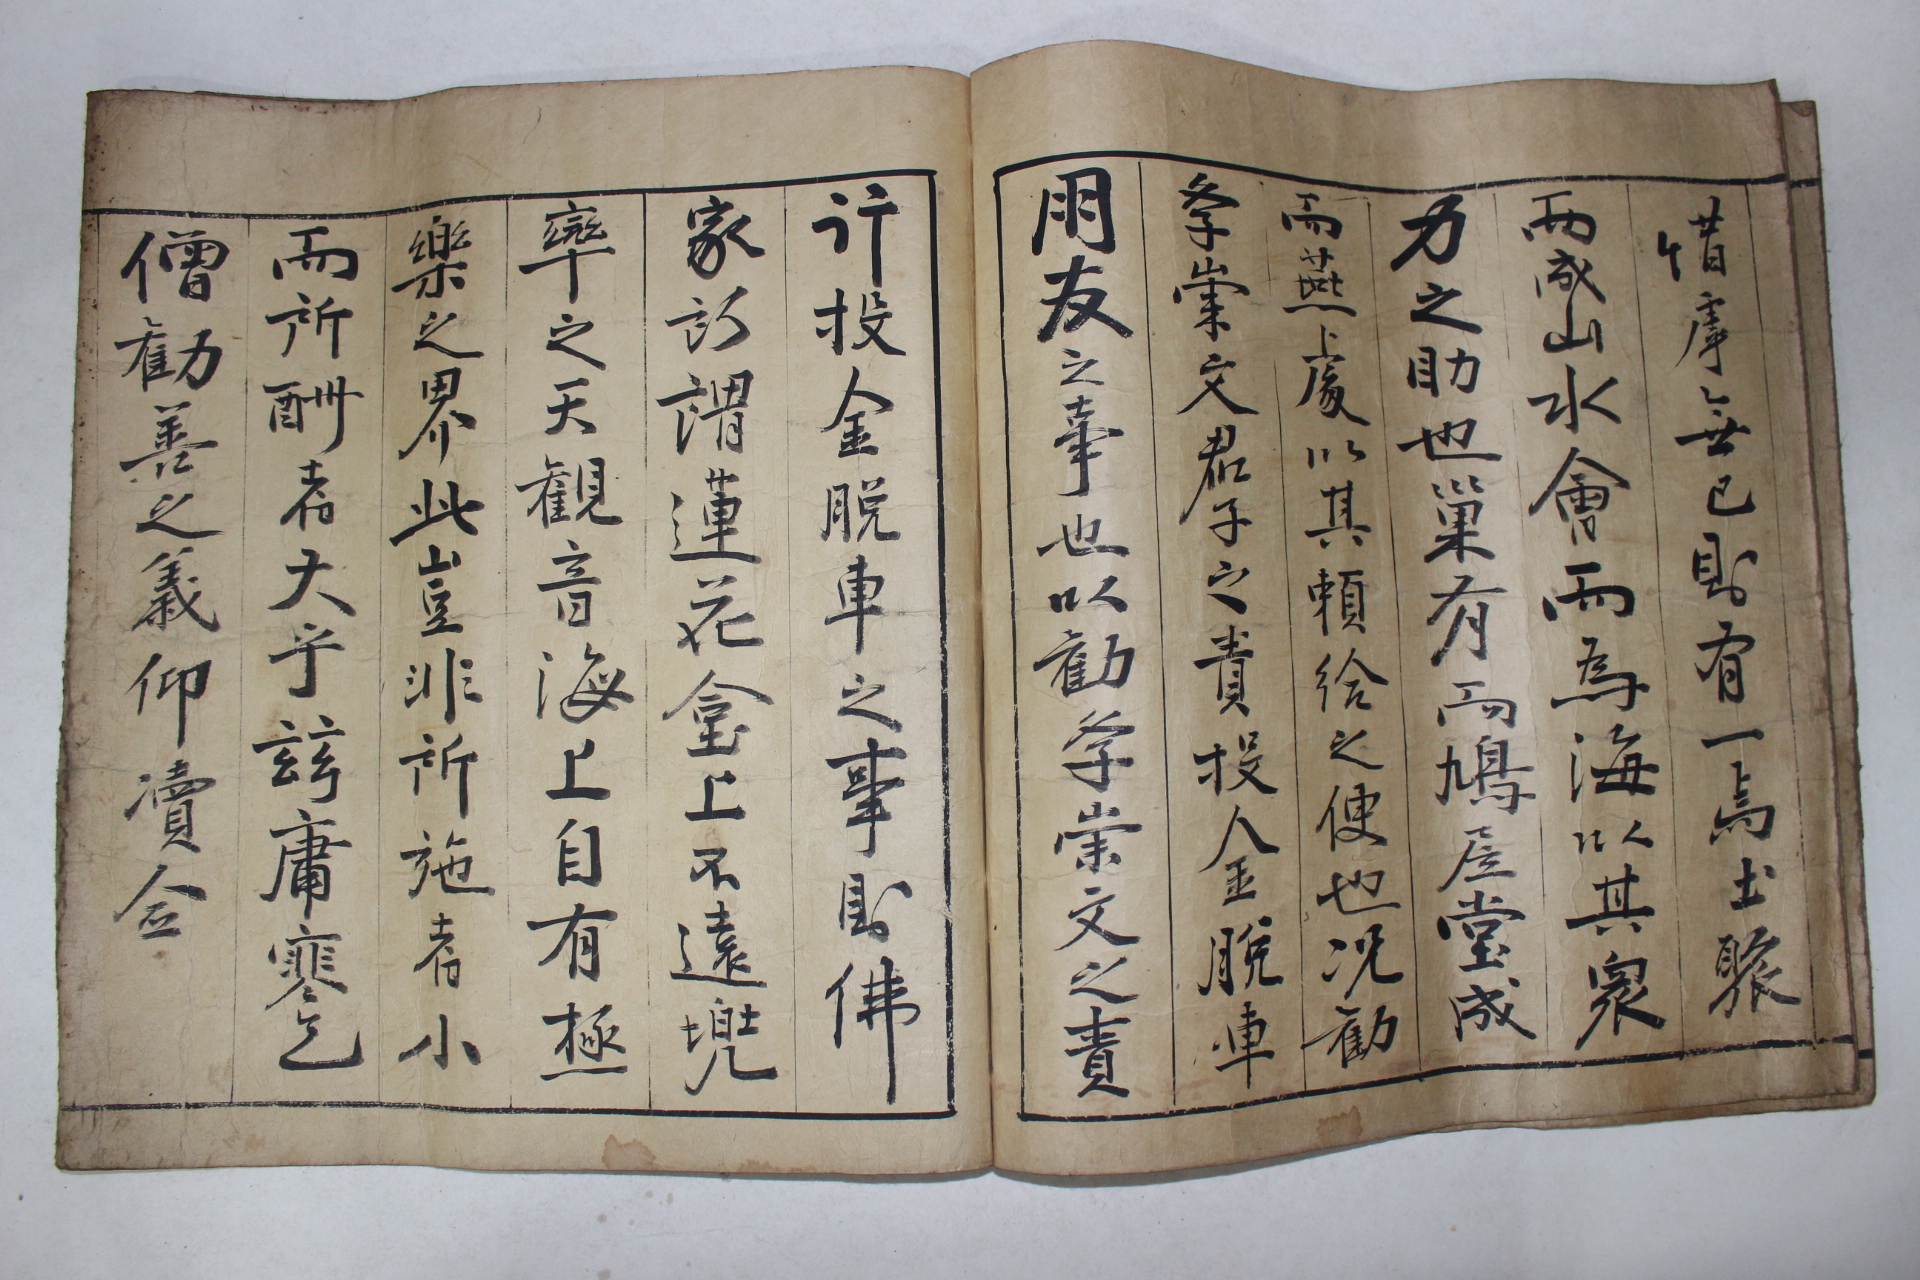 惜虖無已則有一焉土聚
而成山水會而為海以其衆
力之助也巢有而鳩居堂成
而燕處以其賴給之使也况勸
斈崇文君子之責投金脫車
朋友之事也以勸斈崇文之責
計投金脫車之事則佛
家所謂蓮花臺上不遠兜
率之天觀音海上自有極
樂之界此豈非所施者小
而所酬者大乎玆庸寒乞
僧勸善之義仰瀆僉